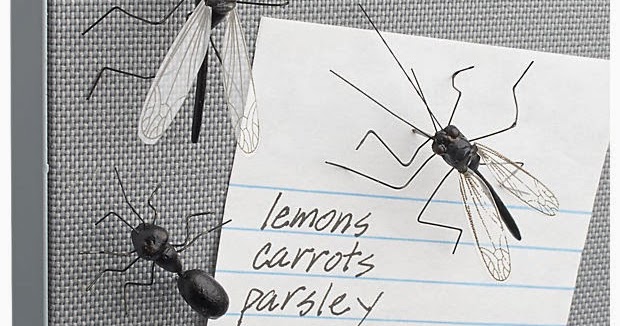 lemons
carrots
parsley